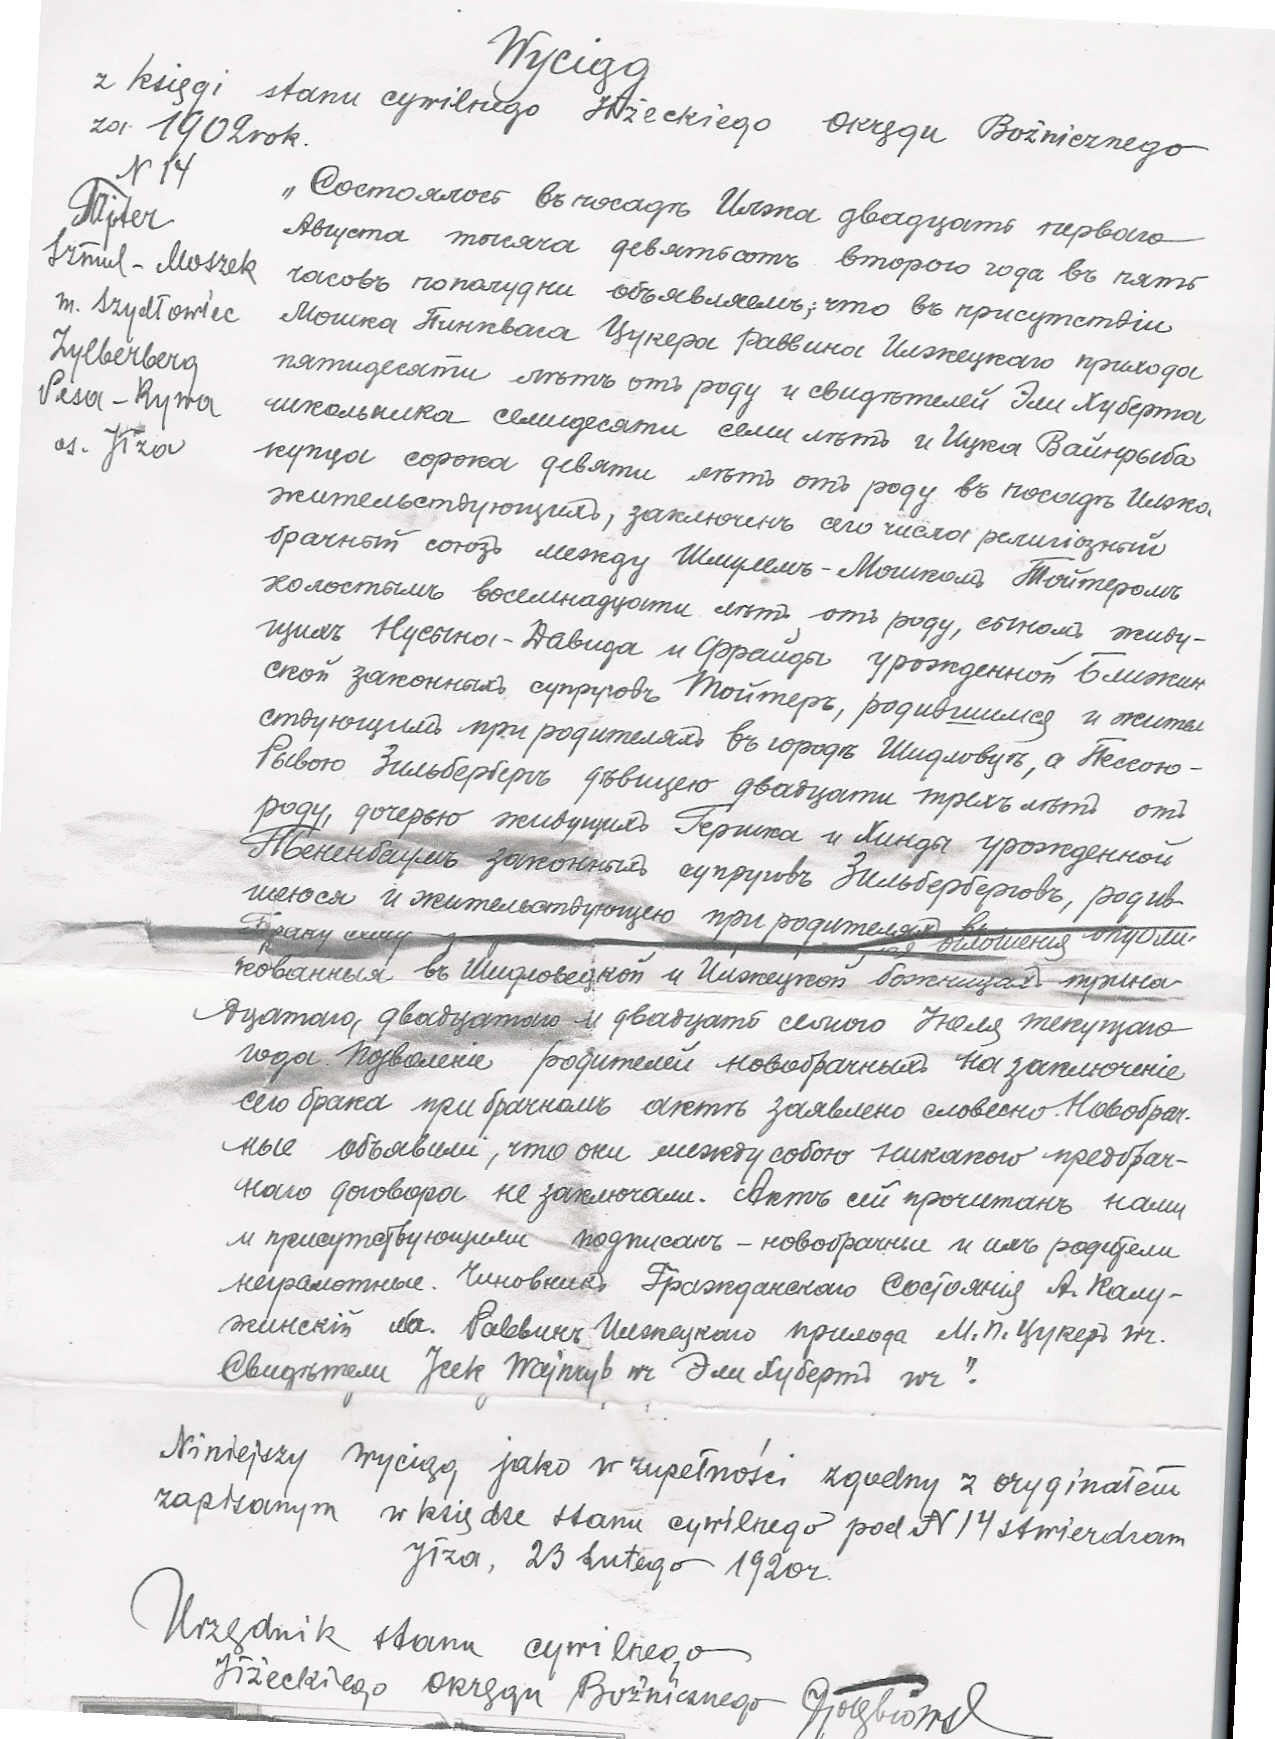 Wyciąg
z księgi stanu cywilnego Iłżeckiego Okręgu Bożnicznego
za 1902 rok.
N 14
Tojter
Szmul - Moszek
m. Szydłowiec
Zylberberg
Pesa - Rywa
os. Iłża
„Состоялось въ посадѣ Илжа двадцать перваго
Августа тысяча девятьсотъ второго года въ пять
часовъ пополудни объявляемъ, что въ присутствіи
Мошка Пинкваса Цукера раввина Илжецкаго прихода
пятидесяти лѣтъ отъ роду и свидѣтелей Эли Хуберта
школьника семидесяти семи лѣтъ и Ицка Вайнрыба
купца сорока девяти лѣтъ отъ роду въ посадѣ Илжа
жительствующихъ, заключенъ сего числа религіозный
брачный союзъ между Шмулемъ - Мошкомъ Тойтеромъ
холостымъ восемнадцати лѣтъ отъ роду, сыномъ живу-
щихъ Нусына - Давида и Фрайды урожденной Ближин
ской законныхъ супруговъ Тойтеръ, родившимся и жител
ствующимъ при родителяхъ въ городѣ Шидловцѣ, а Пессою -
Рывою Зильбербергъ дѣвицею двадцати трехъ лѣтъ отъ
роду, дочерью живущихъ Гершка и Хинды урожденной
Тененбаумъ законныхъ супруговъ Зильберберговъ, родив
шеюся и жительствующею при родителяхъ въ
Браку сему оглошенія опубли-
кованныя въ Шидловецкой и Илжецкой божницахъ трина
дцатаго, двадцатаго и двадцать седмого Іюля текущаго
года. Позволеніе родителей новобрачныхъ на заключеніе
сего брака при брачномъ актѣ заявлено словесно. Новобрач-
ные объявили, что они между собою никакого предбрач-
наго договора не заключали. Актъ сей прочитанъ нами
и присутствующими подписанъ - новобрачные и ихъ родители
неграмотные. Чиновникъ Гражданскаго Состоянія А. Калу-
жинскій Раввинъ Илжецкаго прихода М. П. Цукеръ mr.
Свидѣтели Icek Wajnryb mr Эли Хубертъ mr".
Niniejszy wyciąg jako w zupełności zgodny z oryginałem
zapisanym w księdze stanu cywilnego pod N 14 stwierdzam
Iłża, 23 Lutego 1920 r.
Urzędnik stanu cywilnego
Iłżeckiego Okręgu Bożnicznego